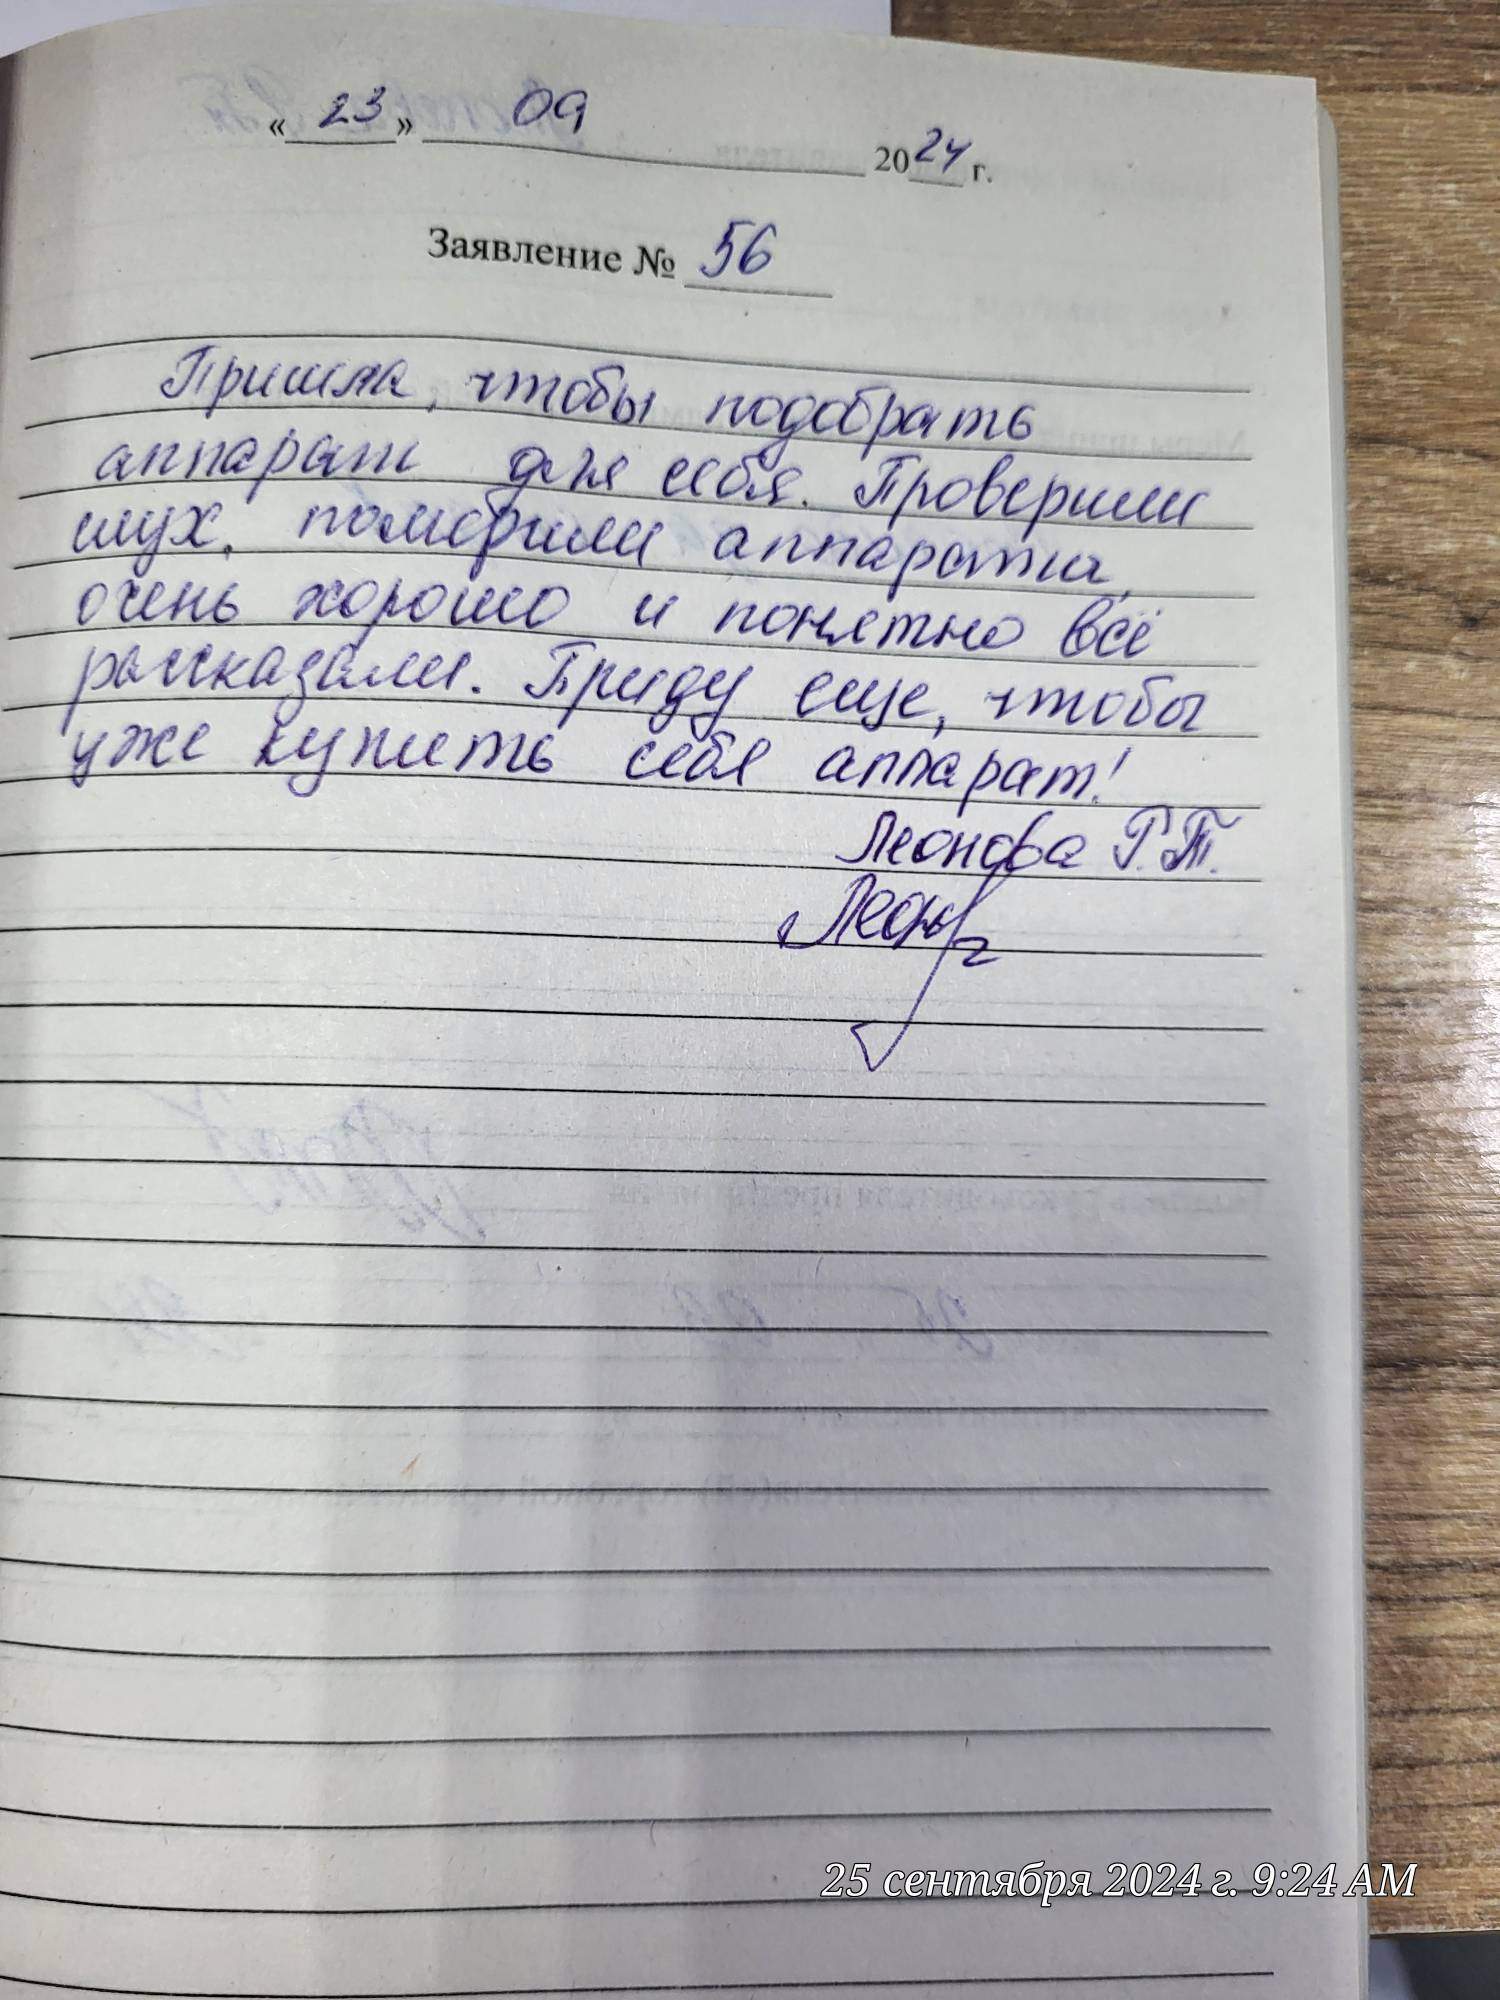 « 23 » 09 2024 г.
Заявление № 56
Пришла, чтобы подобрать
аппарат для себя. Проверили
слух, померили аппараты,
очень хорошо и понятно всё
рассказали. Приду еще, чтобы
уже купить себя аппарат!
Леонова Р.Т.
25 сентября 2024 г. 9:24 AM